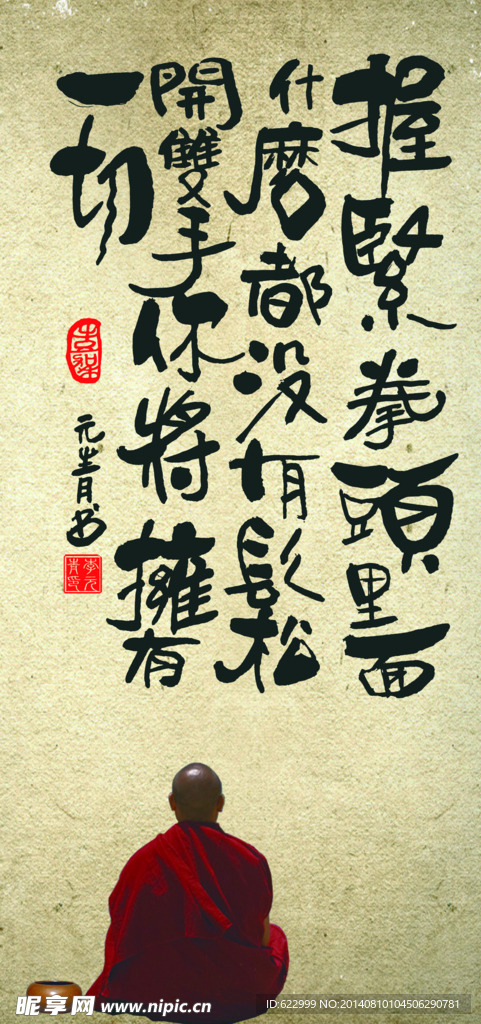 握緊拳頭里面
什麼都没有鬆
開雙手你將擁有
一切
元青书
李元青印
昵享网 www.nipic.cn
ID:622999 NO:20140810104506290781